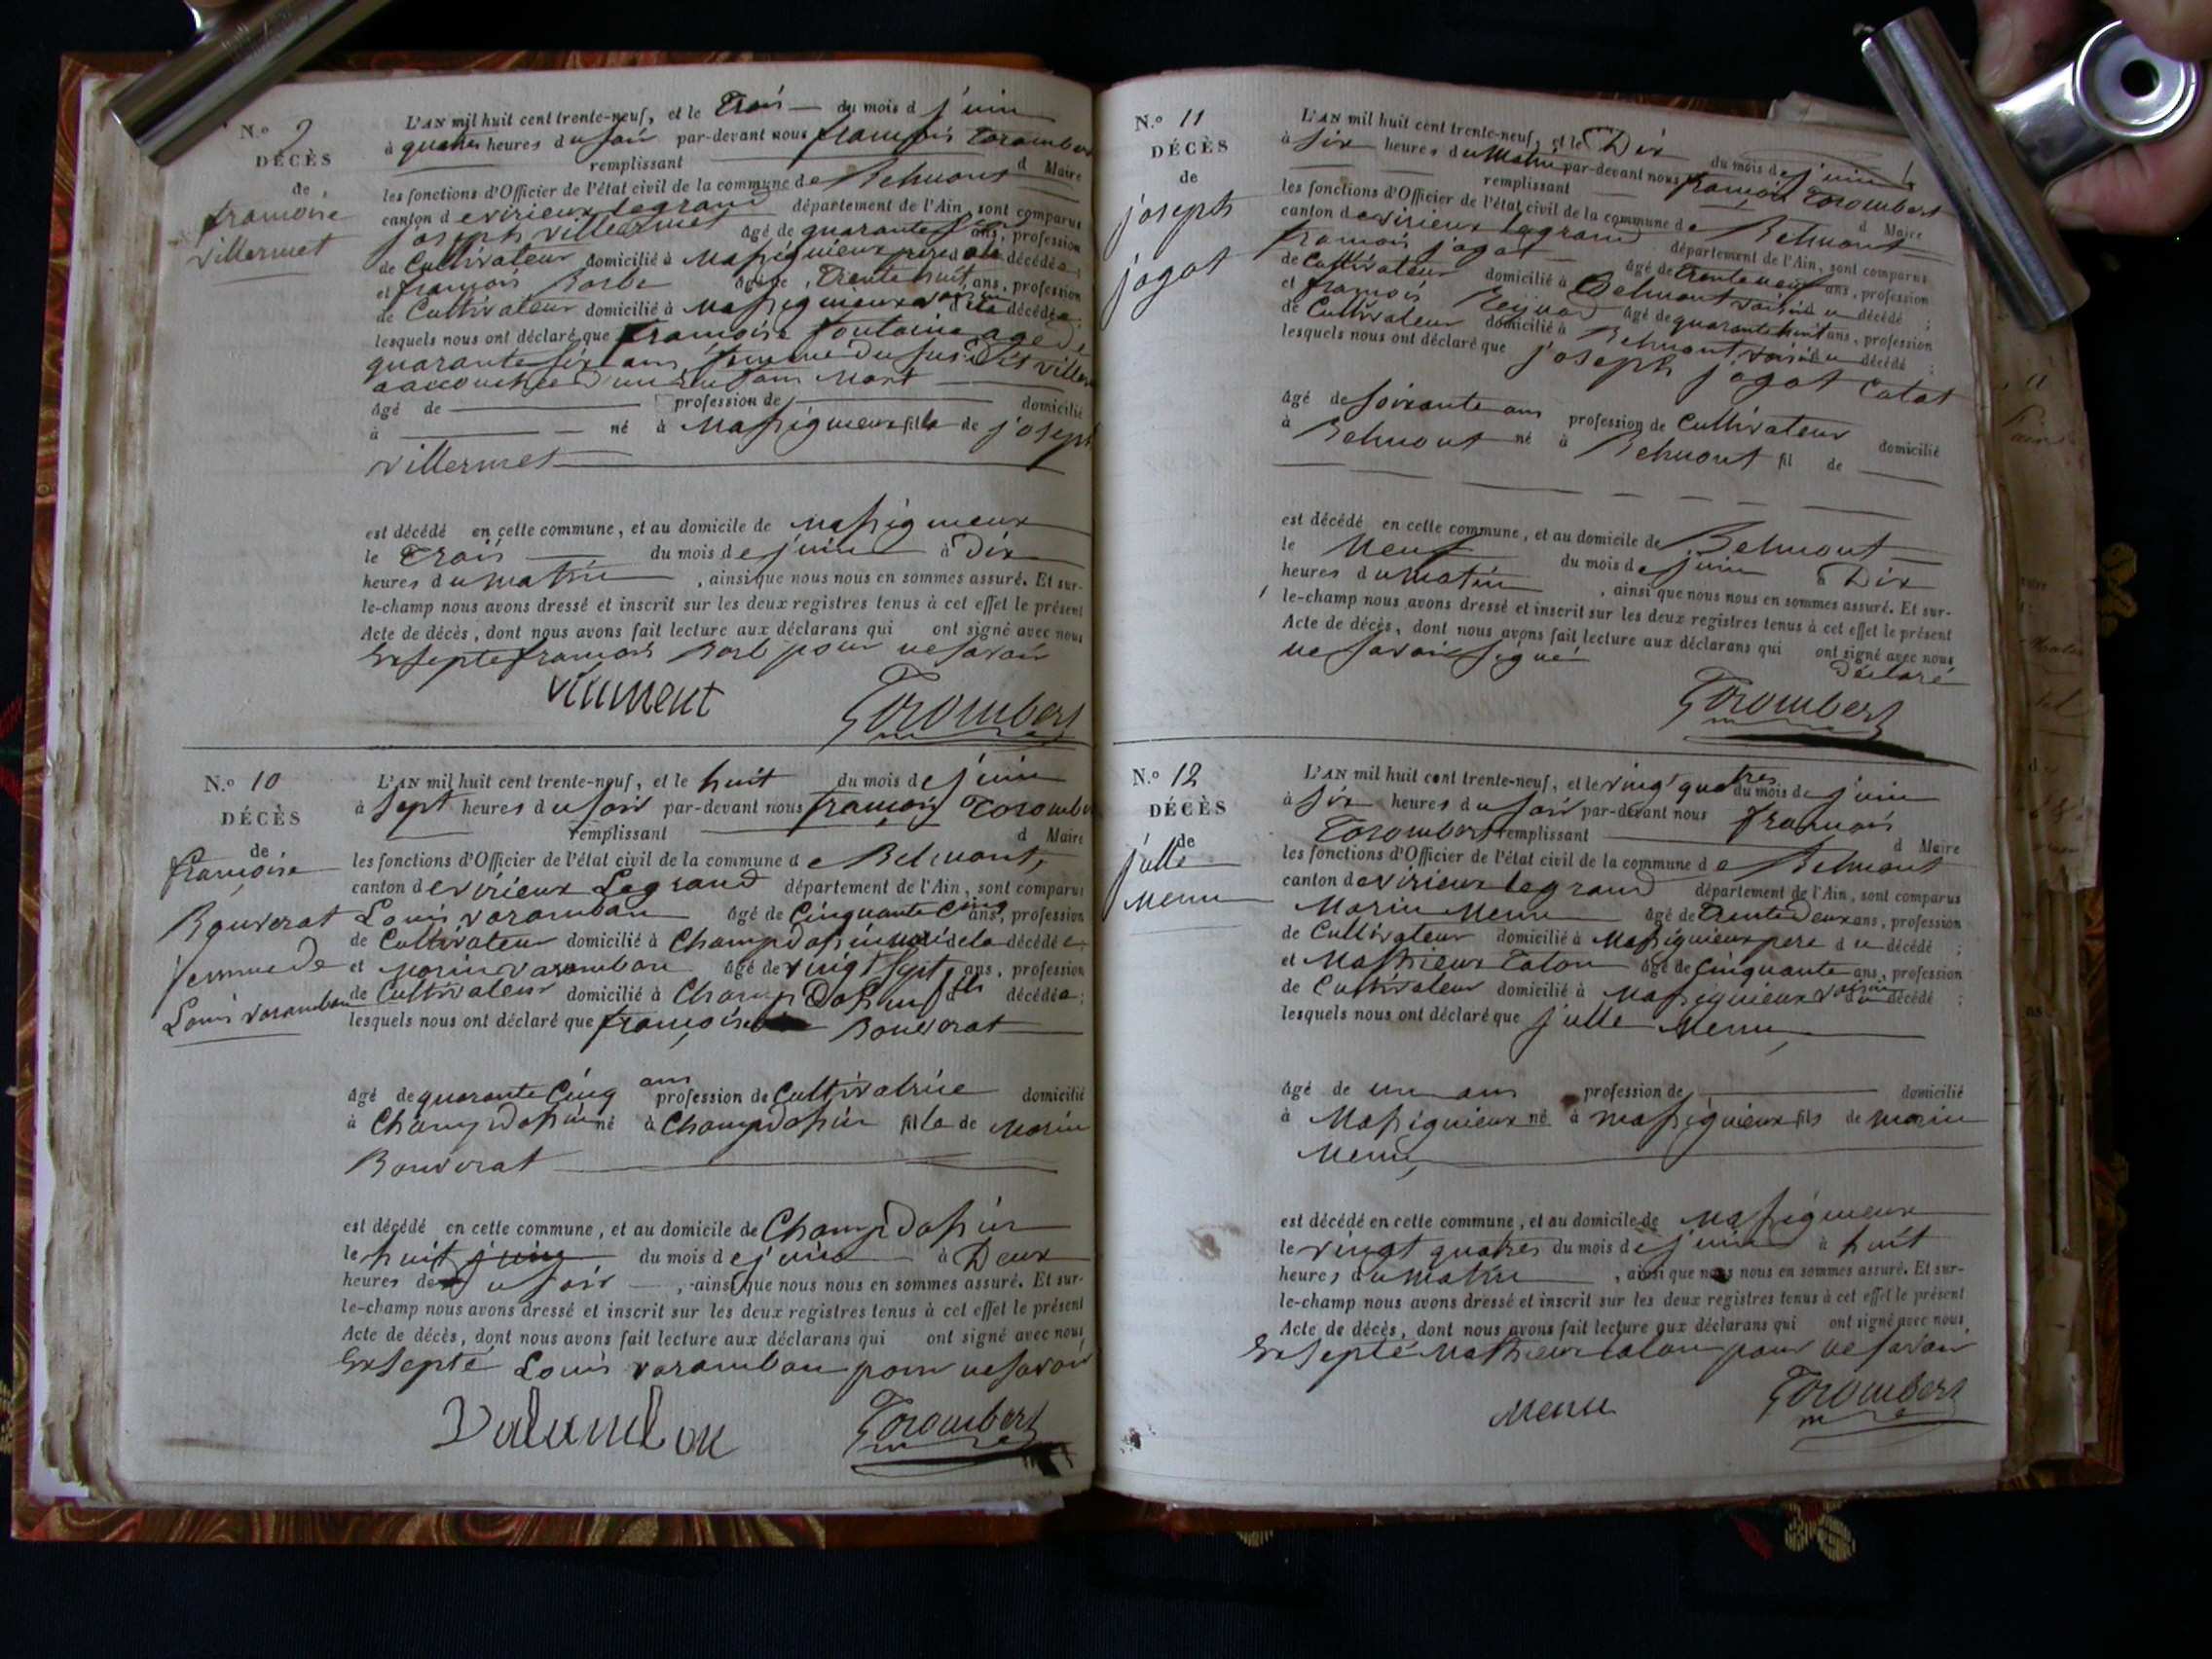 N.o 9
DÉCÈS
de
françoise
villermet
L'AN mil huit cent trente-neuf, et le Trois du mois d juin
à quatres heures d u soir par-devant nous françois Torombert
remplissant d Maire
les fonctions d'Officier de l'état civil de la commune de Belmont
canton d e virieux legrand département de l'Ain, sont comparus
joseph villermet âgé de quarante ans, profession
de Cultivateur domicilié à Massignieux père d e la décédée;
et françois Borbe âgé de Trente huit ans, profession
de Cultivateur domicilié à Massignieux voisin d e la décédée;
lesquels nous ont déclaré que françoise fontaine agé de
quarante six ans femme du sus Dit viller
a accouchée d'un Enfans Mort
âgé de profession de domicilié
à né à Massignieux fille de joseph
villermet
est décédé en cette commune, et au domicile de Massignieux
le Trois du mois de juin à Dix
heures d u matin, ainsi que nous nous en sommes assuré. Et sur-
le-champ nous avons dressé et inscrit sur les deux registres tenus à cet effet le présent
Acte de décès, dont nous avons fait lecture aux déclarans qui ont signé avec nous
Exsepte françois Borb pour ne savoir
Torombert
N.o 10
DÉCÈS
de
françoise
Bouvrat
femme de
Louis varambon
L'AN mil huit cent trente-neuf, et le huit du mois de juin
à sept heures d u soir par-devant nous françois Torombe
remplissant d Maire
les fonctions d'Officier de l'état civil de la commune d e Belmont,
canton d e virieux Legrand département de l'Ain, sont comparus
Louis varambon âgé de Cinquante Cinq ans, profession
de Cultivateur domicilié à Champdossin mari de la décédée;
et Morin varambon âgé de vingt sept ans, profession
de Cultivateur domicilié à Champ Dossin fils d décédée;
lesquels nous ont déclaré que françoise Bouvrat
âgé de quarante Cinq ans profession de Cultivatrice domicilié
à Champdossin né à Champdossin fille de Morin
Bouvrat
est décédé en cette commune, et au domicile de Champdossin
le huit du mois de juin à Deux
heures de u soir, ainsi que nous nous en sommes assuré. Et sur-
le-champ nous avons dressé et inscrit sur les deux registres tenus à cet effet le présent
Acte de décès, dont nous avons fait lecture aux déclarans qui ont signé avec nous
Exsepté Louis varambon pour ne savoir
Torombert
N.o 11
DÉCÈS
de
joseph
jogat
L'AN mil huit cent trente-neuf, et le Dix du mois de juin
à six heures d u Matin par-devant nous françois Torombert
remplissant d Maire
les fonctions d'Officier de l'état civil de la commune de Belmont
canton de virieux legrand département de l'Ain, sont comparus
françois jogat âgé de trente neuf ans, profession
de Cultivateur domicilié à Belmont voisin d u décédé;
et françois âgé de quarante huit ans, profession
de Cultivateur domicilié à Belmont voisin d u décédé;
lesquels nous ont déclaré que joseph jogat Catat
âgé de soixante ans profession de Cultivateur domicilié
à Belmont né à Belmont fil de
est décédé en cette commune, et au domicile de Belmont
le Neuf du mois de juin à Dix
heures d u matin, ainsi que nous nous en sommes assuré. Et sur-
le-champ nous avons dressé et inscrit sur les deux registres tenus à cet effet le présent
Acte de décès, dont nous avons fait lecture aux déclarans qui ont signé avec nous
Déclaré
ne savoir signé
Torombert
N.o 12
DÉCÈS
de
julle
Menu
L'AN mil huit cent trente-neuf, et le vingt quatres du mois de juin
à six heures d u soir par-devant nous françois
Torombert remplissant d Maire
les fonctions d'Officier de l'état civil de la commune d e Belmont
canton de virieux legrand département de l'Ain, sont comparus
Morin Menu âgé de Trente Deux ans, profession
de Cultivateur domicilié à Massignieux pere d u décédé;
et Mathieux Calon âgé de Cinquante ans, profession
de Cultivateur domicilié à Massignieux voisin d u décédé;
lesquels nous ont déclaré que julle Menu
âgé de un ans profession de domicilié
à Massignieux né à massignieux fils de morin
Menu
est décédé en cette commune, et au domicile de Massignieux
le vingt quatres du mois de juin à huit
heures d u matin, ainsi que nous nous en sommes assuré. Et sur-
le-champ nous avons dressé et inscrit sur les deux registres tenus à cet effet le présent
Acte de décès, dont nous avons fait lecture aux déclarans qui ont signé avec nous
Exsepté Mathieux Calon pour ne savoir
Menu Torombert